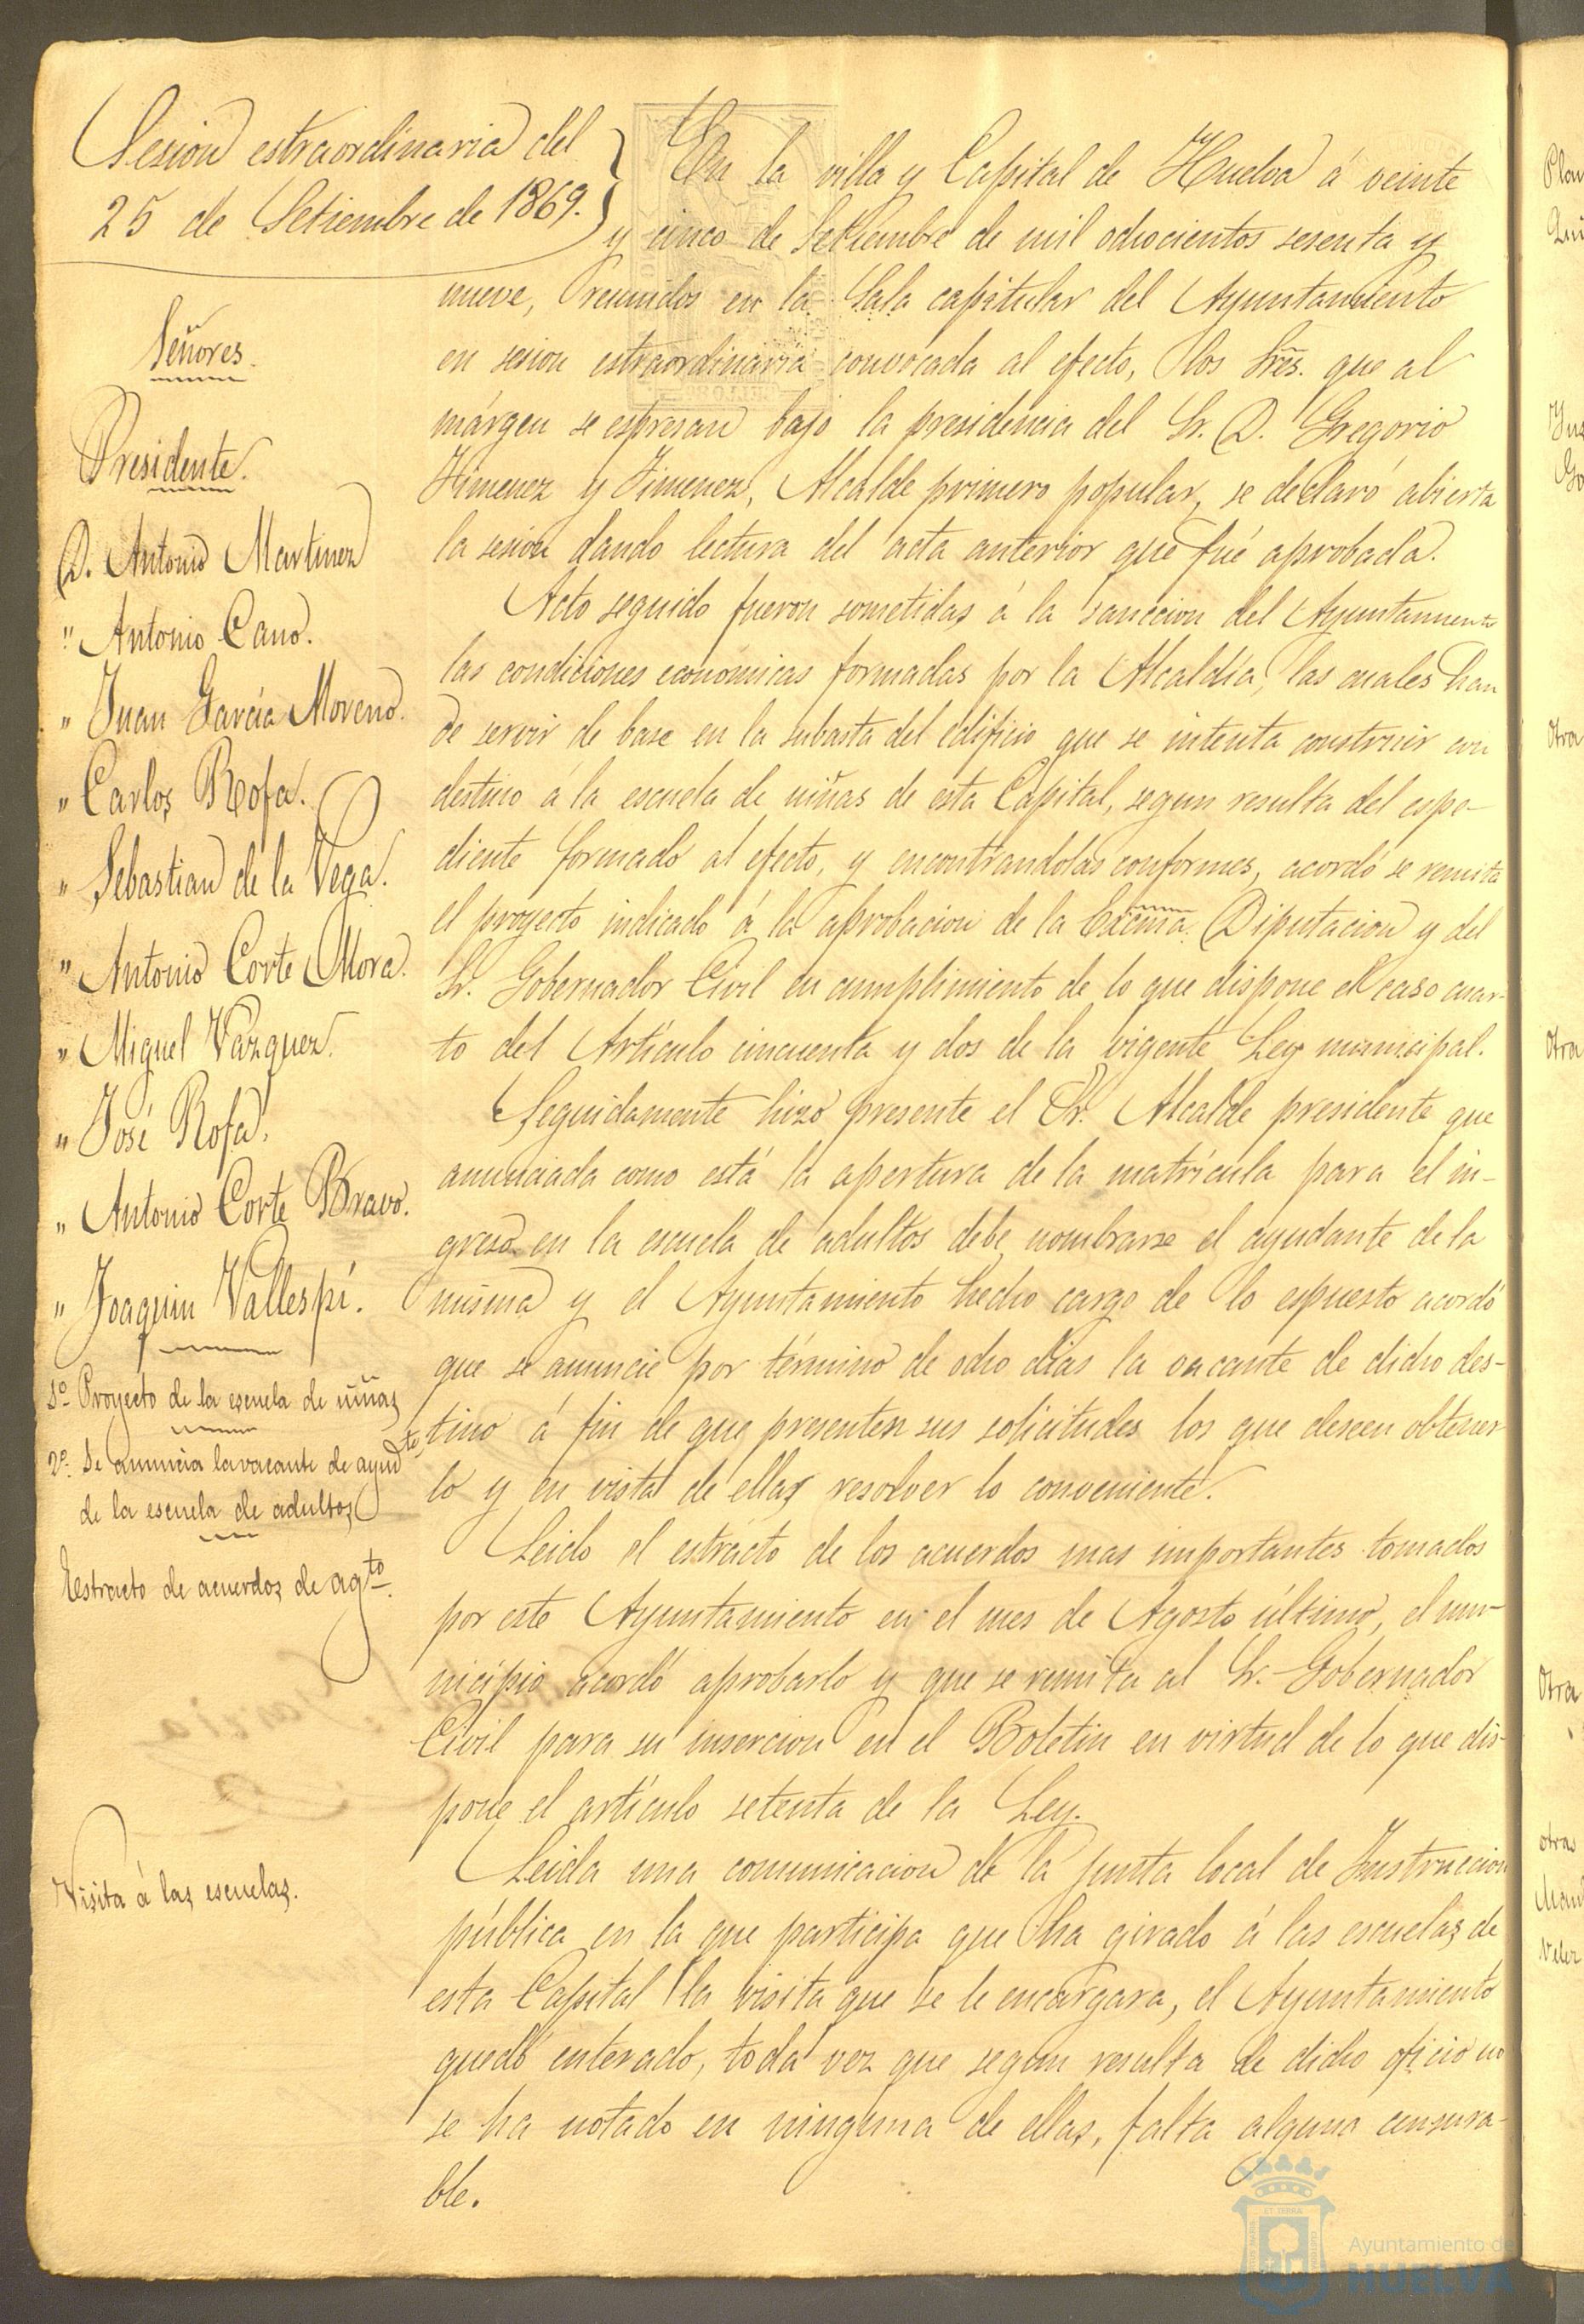 Sesion estraordinaria del
25 de Setiembre de 1869.
Señores.
Presidente.
D. Antonio Martinez
" Antonio Cano.
" Juan García Moreno.
" Carlos Rofa.
" Sebastian de la Vega.
" Antonio Corte Mora.
" Miguel Vazquez.
" José Rofa.
" Antonio Corte Bravo.
" Joaquin Vallespí.
1º Proyecto de la escuela de niñas
2º. Se anuncia la vacante de ayudte
de la escuela de adultos
Estracto de acuerdos de agto.
Visita à las escuelas.
En la villa y Capital de Huelva á veinte
y cinco de Setiembre de mil ochocientos sesenta y
nueve, reunidos en la Sala capitular del Ayuntamiento
en sesion estraordinaria convocada al efecto, los Sres. que al
márgen se espresan bajo la presidencia del Sr. D. Gregorio
Jimenez y Jimenez, Alcalde primero popular, se declaró abierta
la sesion dando lectura del acta anterior que fué aprobada.
Acto seguido fueron sometidas á la sancion del Ayuntamiento
las condiciones económicas formadas por la Alcaldía, las cuales han
de servir de base en la subasta del edificio que se intenta construir con
destino á la escuela de niñas de esta Capital, segun resulta del espe-
diente formado al efecto, y encontrandolas conformes, acordó se remita
el proyecto indicado á la aprobacion de la Excma. Diputacion y del
Sr. Gobernador Civil en cumplimiento de lo que dispone el caso cuar-
to del Artículo cincuenta y dos de la vigente Ley municipal.
Seguidamente hizo presente el Sr. Alcalde presidente que
anunciada como está la apertura de la matrícula para el in-
greso en la escuela de adultos debe nombrarse el ayudante de la
misma y el Ayuntamiento hecho cargo de lo espuesto acordó
que se anuncie por término de ocho dias la vacante de dicho des-
tino á fin de que presenten sus solicitudes los que deseen obtener
lo y en vista de ellas resolver lo conveniente.
Leido el estracto de los acuerdos mas importantes tomados
por este Ayuntamiento en el mes de Agosto último, el mu-
nicipio acordó aprobarlo y que se remita al Sr. Gobernador
Civil para su insercion en el Boletin en virtud de lo que dis-
pone el artículo setenta de la Ley.
Leida una comunicacion de la junta local de Instruccion
pública en la que participa que ha girado á las escuelas de
esta Capital la visita que se le encargara, el Ayuntamiento
quedó enterado, toda vez que segun resulta de dicho oficio no
se ha notado en ninguna de ellas, falta alguna censura-
ble.
Otra
Otra
Otra
otras
Ayuntamiento de
HUELVA